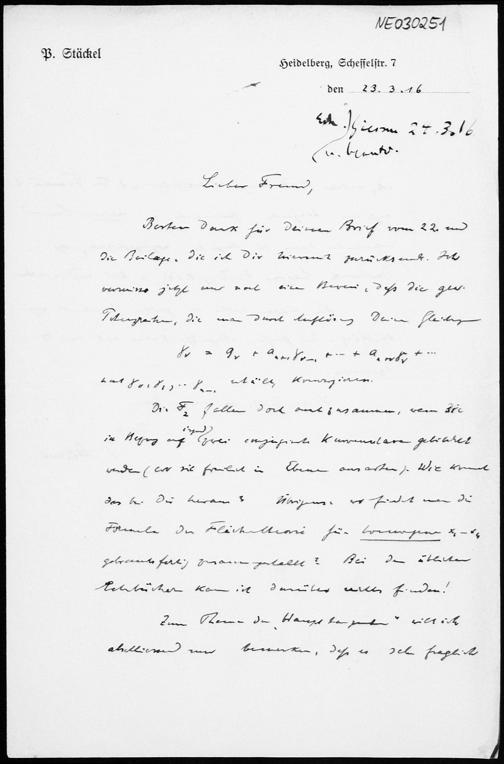 NE030251
P. Stäckel
Heidelberg, Scheffelstr. 7
den 23.3.16
24.3.16
u. beantw.
Lieber Freund,
Besten Dank für Deinen Brief vom 22. und
die Beilage, die ich Dir hiermit zurücksende. Ich
vermisse jetzt nur noch einen Beweis, daß die
die man durch Auflösung Deiner Gleichungen
erhält, konvergieren.
Die F₂ fallen doch auch zusammen, wenn sie
in Bezug auf irgend zwei konjugierte gebildet
werden (wo sie freilich in Ebenen ausarten). Wie kommt
das bei Dir heraus? Übrigens: wo findet man die
Formeln der Flächentheorie für
gebrauchsfertig zusammengestellt? Bei den üblichen
Lehrbüchern kann ich darüber nichts finden!
Zum Thema der will ich
abschliessend nur bemerken, daß es sehr fraglich